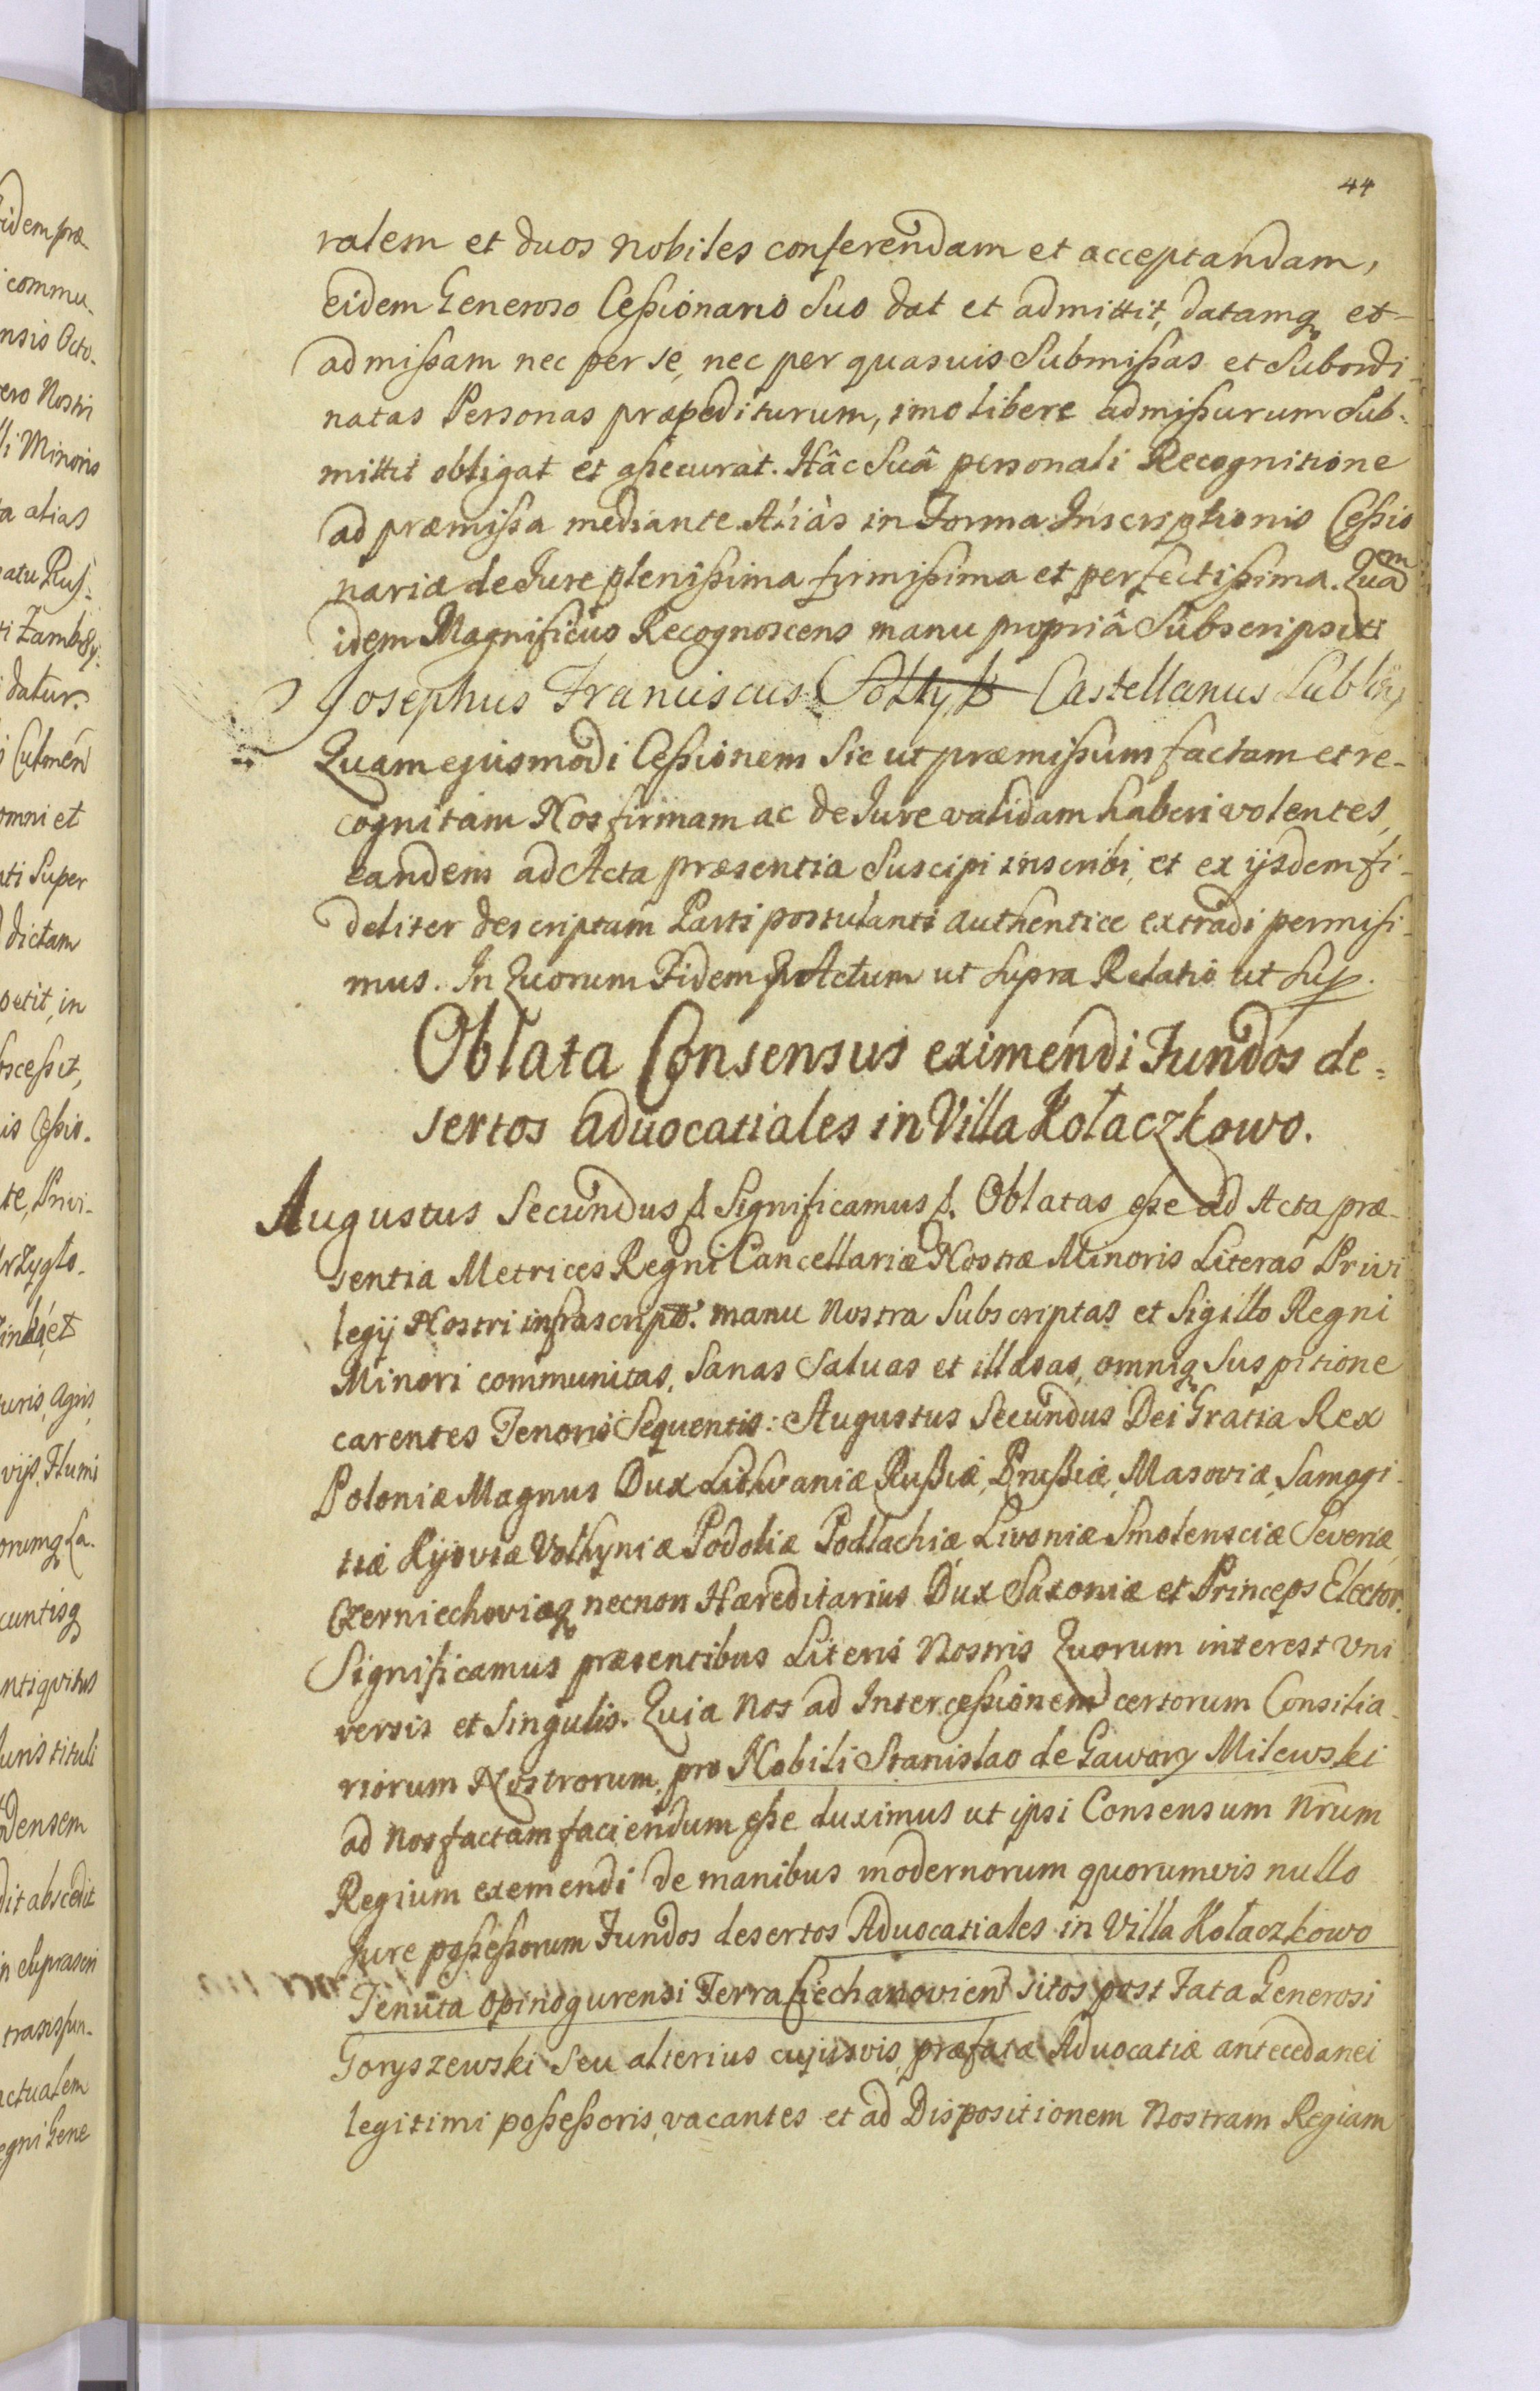 44
ralem et duos nobiles conferendam et acceptandam,
eidem Generoso Cessionario suo dat et admittit, datamq et
admissam nec per se, nec per quasuis Submissas et Subordi-
natas Personas præpediturum, imo libere admissurum sub-
mittit obligat et assecurat. Hâc Suâ personali Recognitione
ad præmissa mediante Aliàs in Forma Inscriptionis Cessio
nariæ de Jure plenissima firmissima et perfectissima. Quam
idem Magnificus Recognoscens manu propriâ Subscripsit
Josephus Franciscus Sołtyk Castellanus Lublin
Quam ejusmodi Cessionem Sic ut præmissum factam et re-
cognitam Nos firmam ac de Jure validam haberi volentes,
eandem ad Acta præsentia Suscipi inscribi, et ex ijsdem fi-
deliter descriptam Parti postulanti authentice extradi permisi-
mus. In Quorum Fidem Actum ut supra Relatio ut sup.
Oblata Consensus eximendi Fundos de=
sertos aduocatiales in Villa Kołaczkowo.
Augustus Secundus Significamus Oblatas esse ad Acta præ-
sentia Metrices Regni Cancellariæ Nostræ Minoris Literas Privi
legij Nostri infrascript. manu nostra Subscriptas et Sigillo Regni
Minori communitas, Sanas Saluas et illæsas, omniq Suspitione
carentes Tenoris Sequentis: Augustus Secundus Dei Gratia Rex
Poloniæ Magnus Dux Lithvaniæ Russiæ, Prussiæ, Masoviæ, Samogi-
tiæ Kyoviæ Volhyniæ Podoliæ Podlachiæ Livoniæ Smolensciæ Severiæ
Czerniechoviæq necnon Hæreditarius Dux Saxoniæ et Princeps Elector.
Significamus præsentibus Literis Nostris Quorum interest Vni
versis et Singulis. Quia Nos ad Intercessionem certorum Consilia-
riorum Nostrorum, pro Nobili Stanislao de Gawory Milewski
ad nos factam faciendum esse duximus ut ipsi Consensum Nrum
Regium exemendi de manibus modernorum quorumvis nullo
Jure possessorum Fundos desertos Aduocatiales in Villa Kołaczkowo
Tenuta Opinogurensi Terra Ciechanovien sitos post Fata Generosi
Goryszewski Seu alterius cujusvis, præfatæ Aduocatiæ antecedanei
legitimi possessoris, vacantes et ad Dispositionem Nostram Regiam